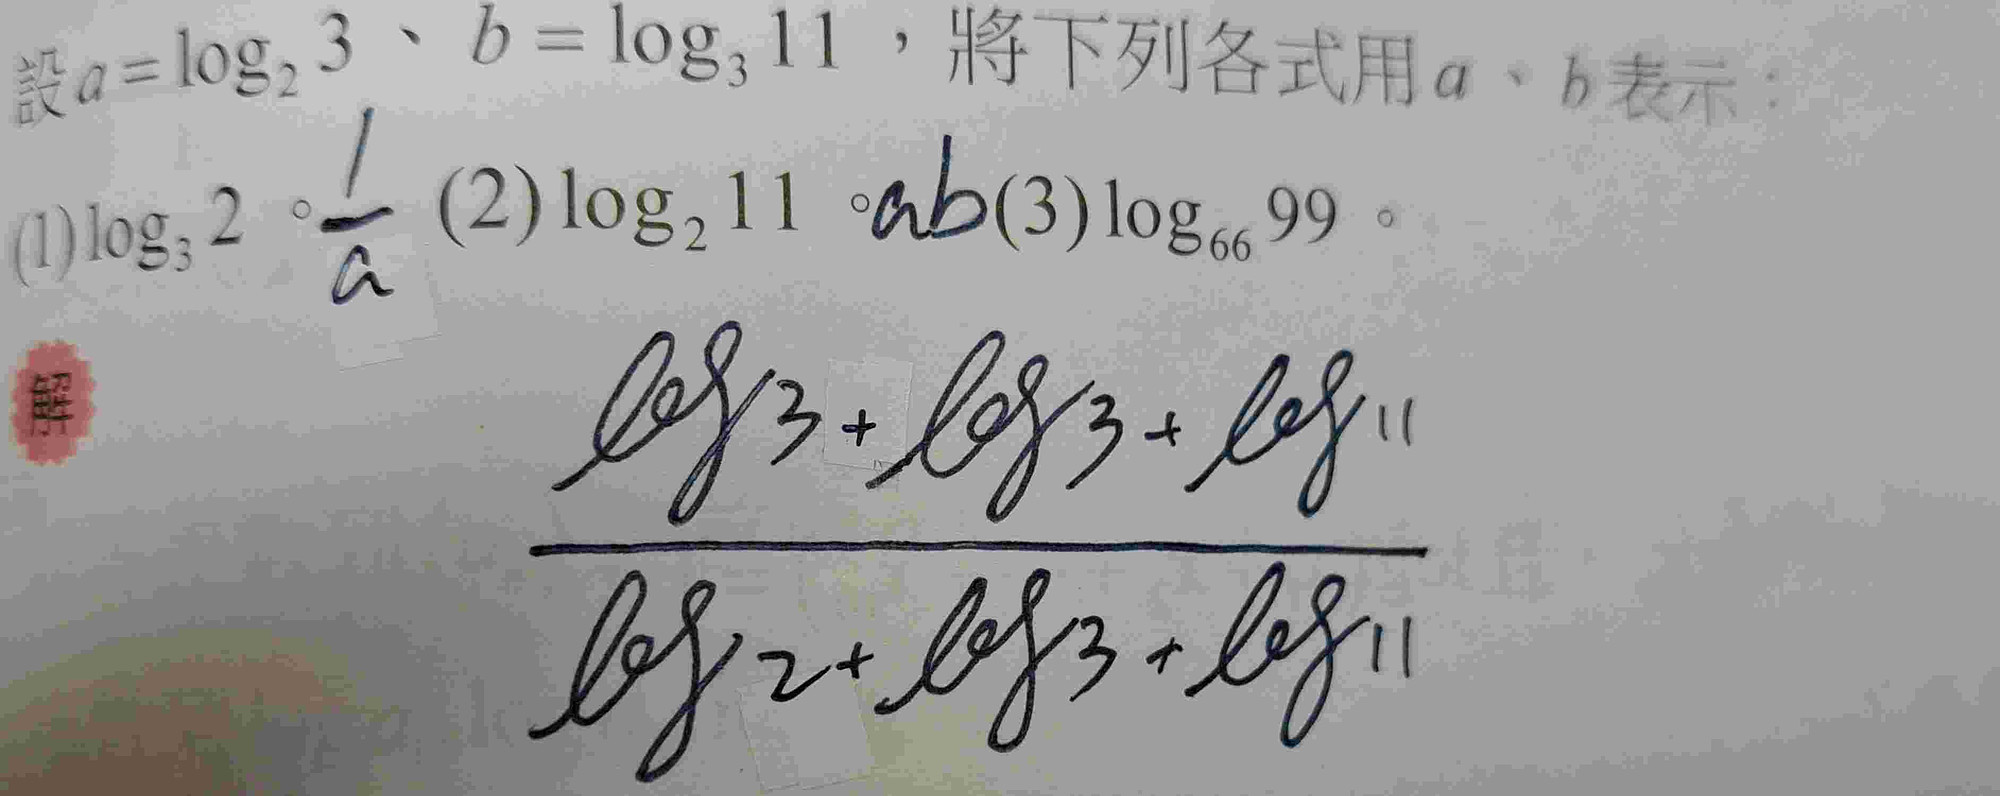 設a=log₂3、b=log₃11，將下列各式用a、b表示：
(1)log₃2。1/a (2)log₂11。ab(3)log₆₆99。
解
log3+log3+log11
log2+log3+log11